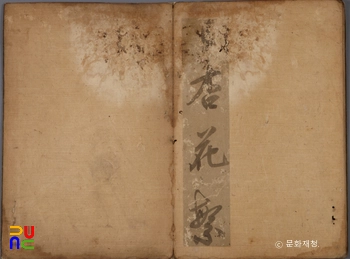 杏花繁
ⓒ 문화재청